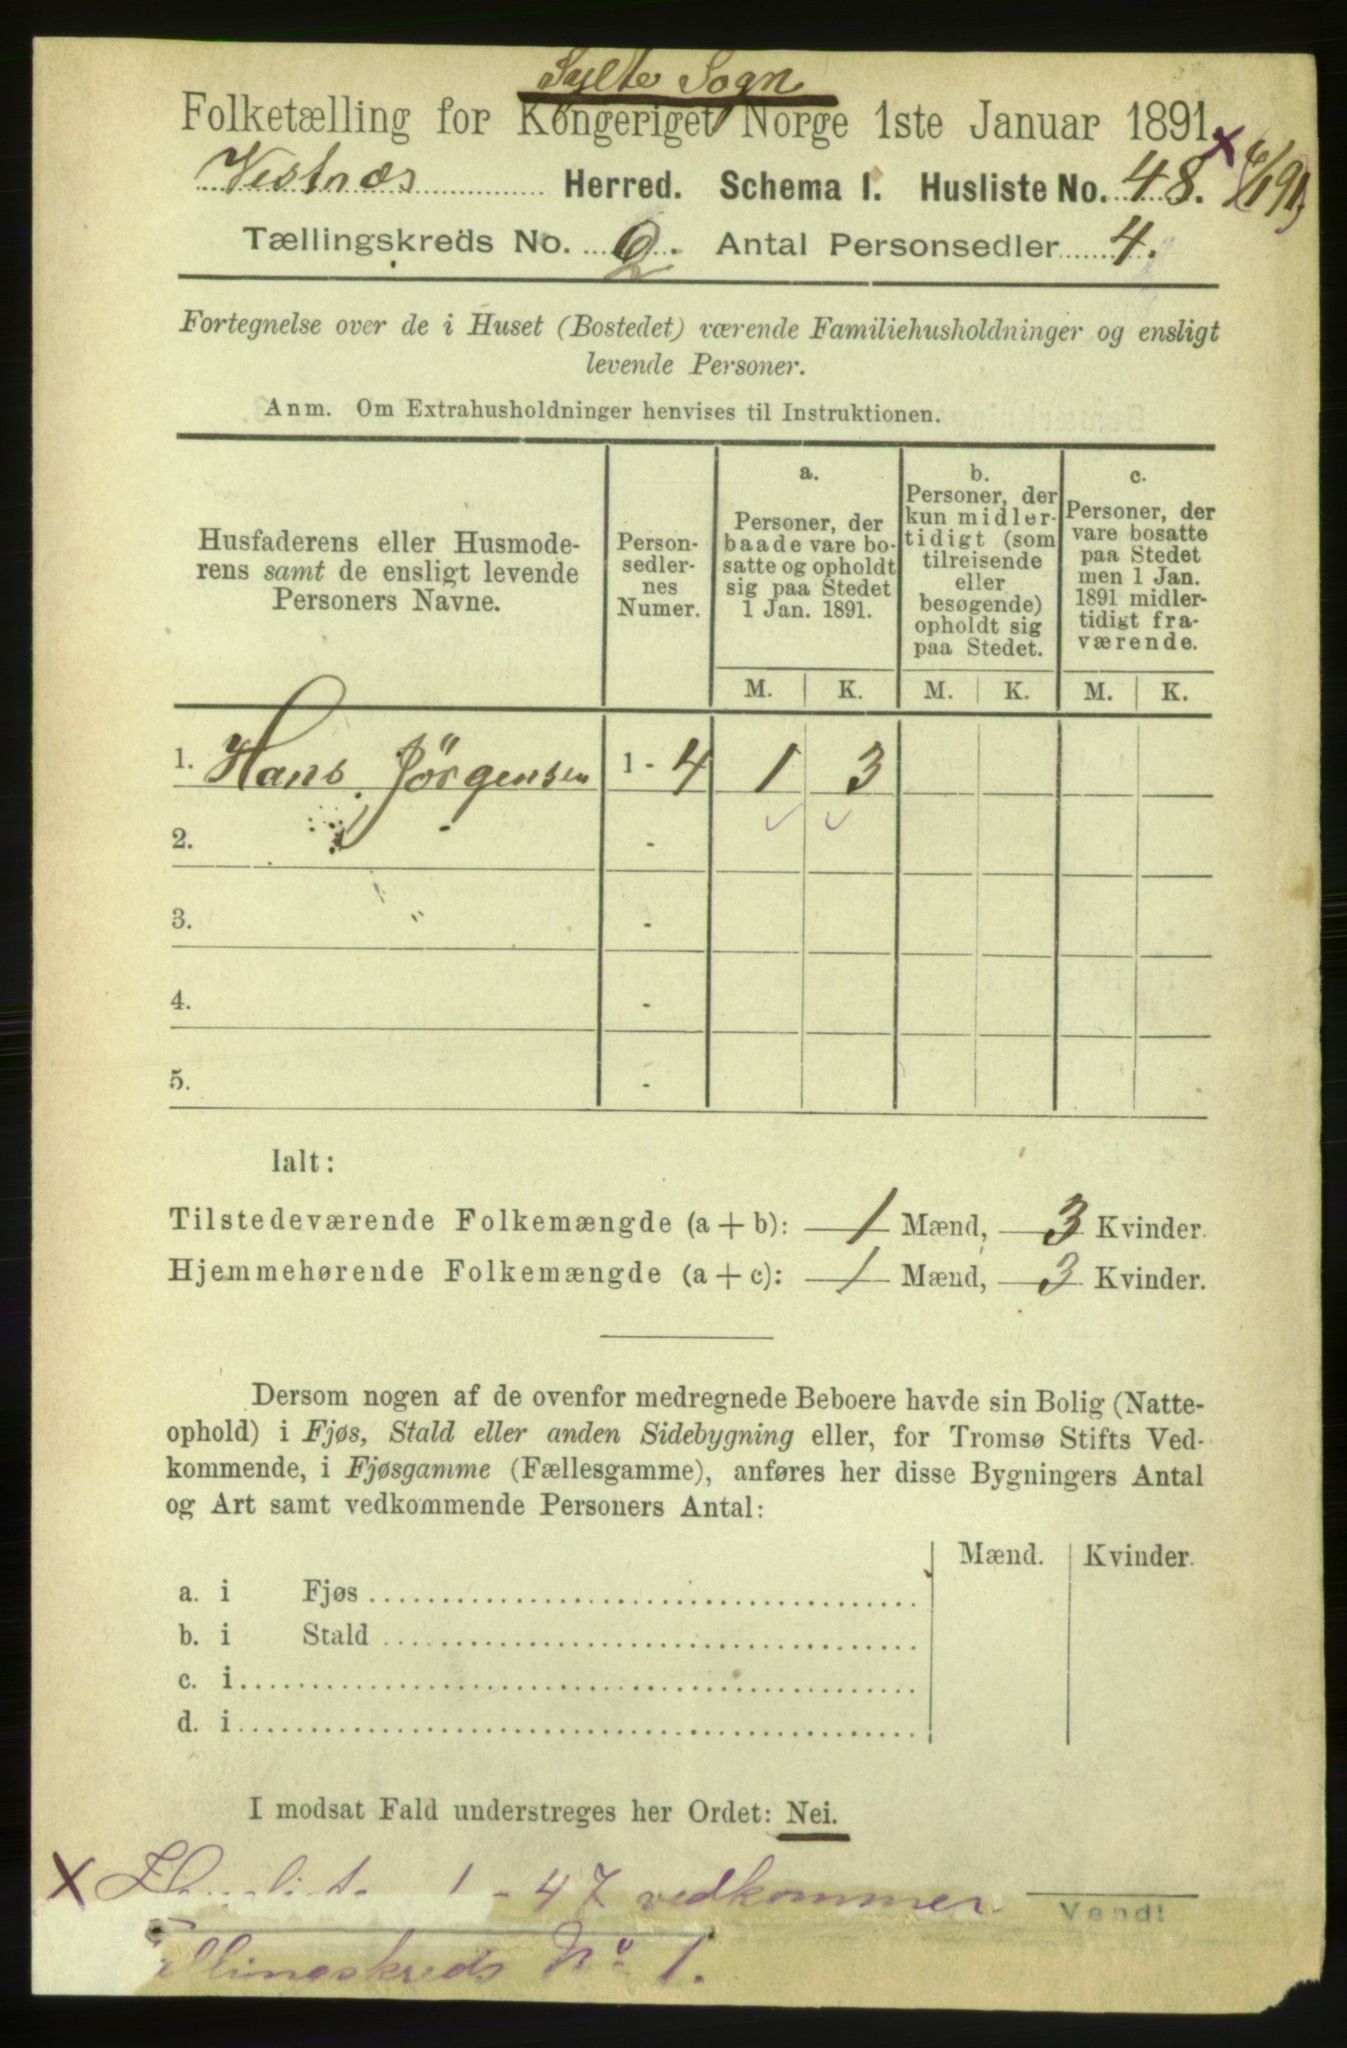 Sylte Sogn
Folketælling for Kongeriget Norge 1ste Januar 1891.
Vestnæs Herred. Schema I. Husliste No. 48.
Tællingskreds No. 2. Antal Personsedler 4.
Fortegnelse over de i Huset (Bostedet) værende Familiehusholdninger og ensligt
levende Personer.
Anm. Om Extrahusholdninger henvises til Instruktionen.
Husfaderens eller Husmode-
rens samt de ensligt levende
Personers Navne.
Person-
sedler-
nes
Numer.
a.
Personer, der
baade vare bo-
satte og opholdt
sig paa Stedet
1 Jan. 1891.
b.
Personer, der
kun midler-
tidigt (som
tilreisende
eller
besøgende)
opholdt sig
paa Stedet.
c.
Personer, der
vare bosatte
paa Stedet
men 1 Jan.
1891 midler-
tidigt fra-
værende.
M. K. M. K. M. K.
1. Hans Jörgensen 1 - 4 1 3
2. -
3. -
4. -
5. -
Ialt:
Tilstedeværende Folkemængde (a + b): 1 Mænd, 3 Kvinder.
Hjemmehørende Folkemængde (a + c): 1 Mænd, 3 Kvinder.
Dersom nogen af de ovenfor medregnede Beboere havde sin Bolig (Natte-
ophold) i Fjøs, Stald eller anden Sidebygning eller, for Tromsø Stifts Ved-
kommende, i Fjøsgamme (Fællesgamme), anføres her disse Bygningers Antal
og Art samt vedkommende Personers Antal:
Mænd. Kvinder.
a. i Fjøs
b. i Stald
c. i
d. i
I modsat Fald understreges her Ordet: Nei.
X 1 - 47 vedkommer
Vend!
Tællingskreds No 1.